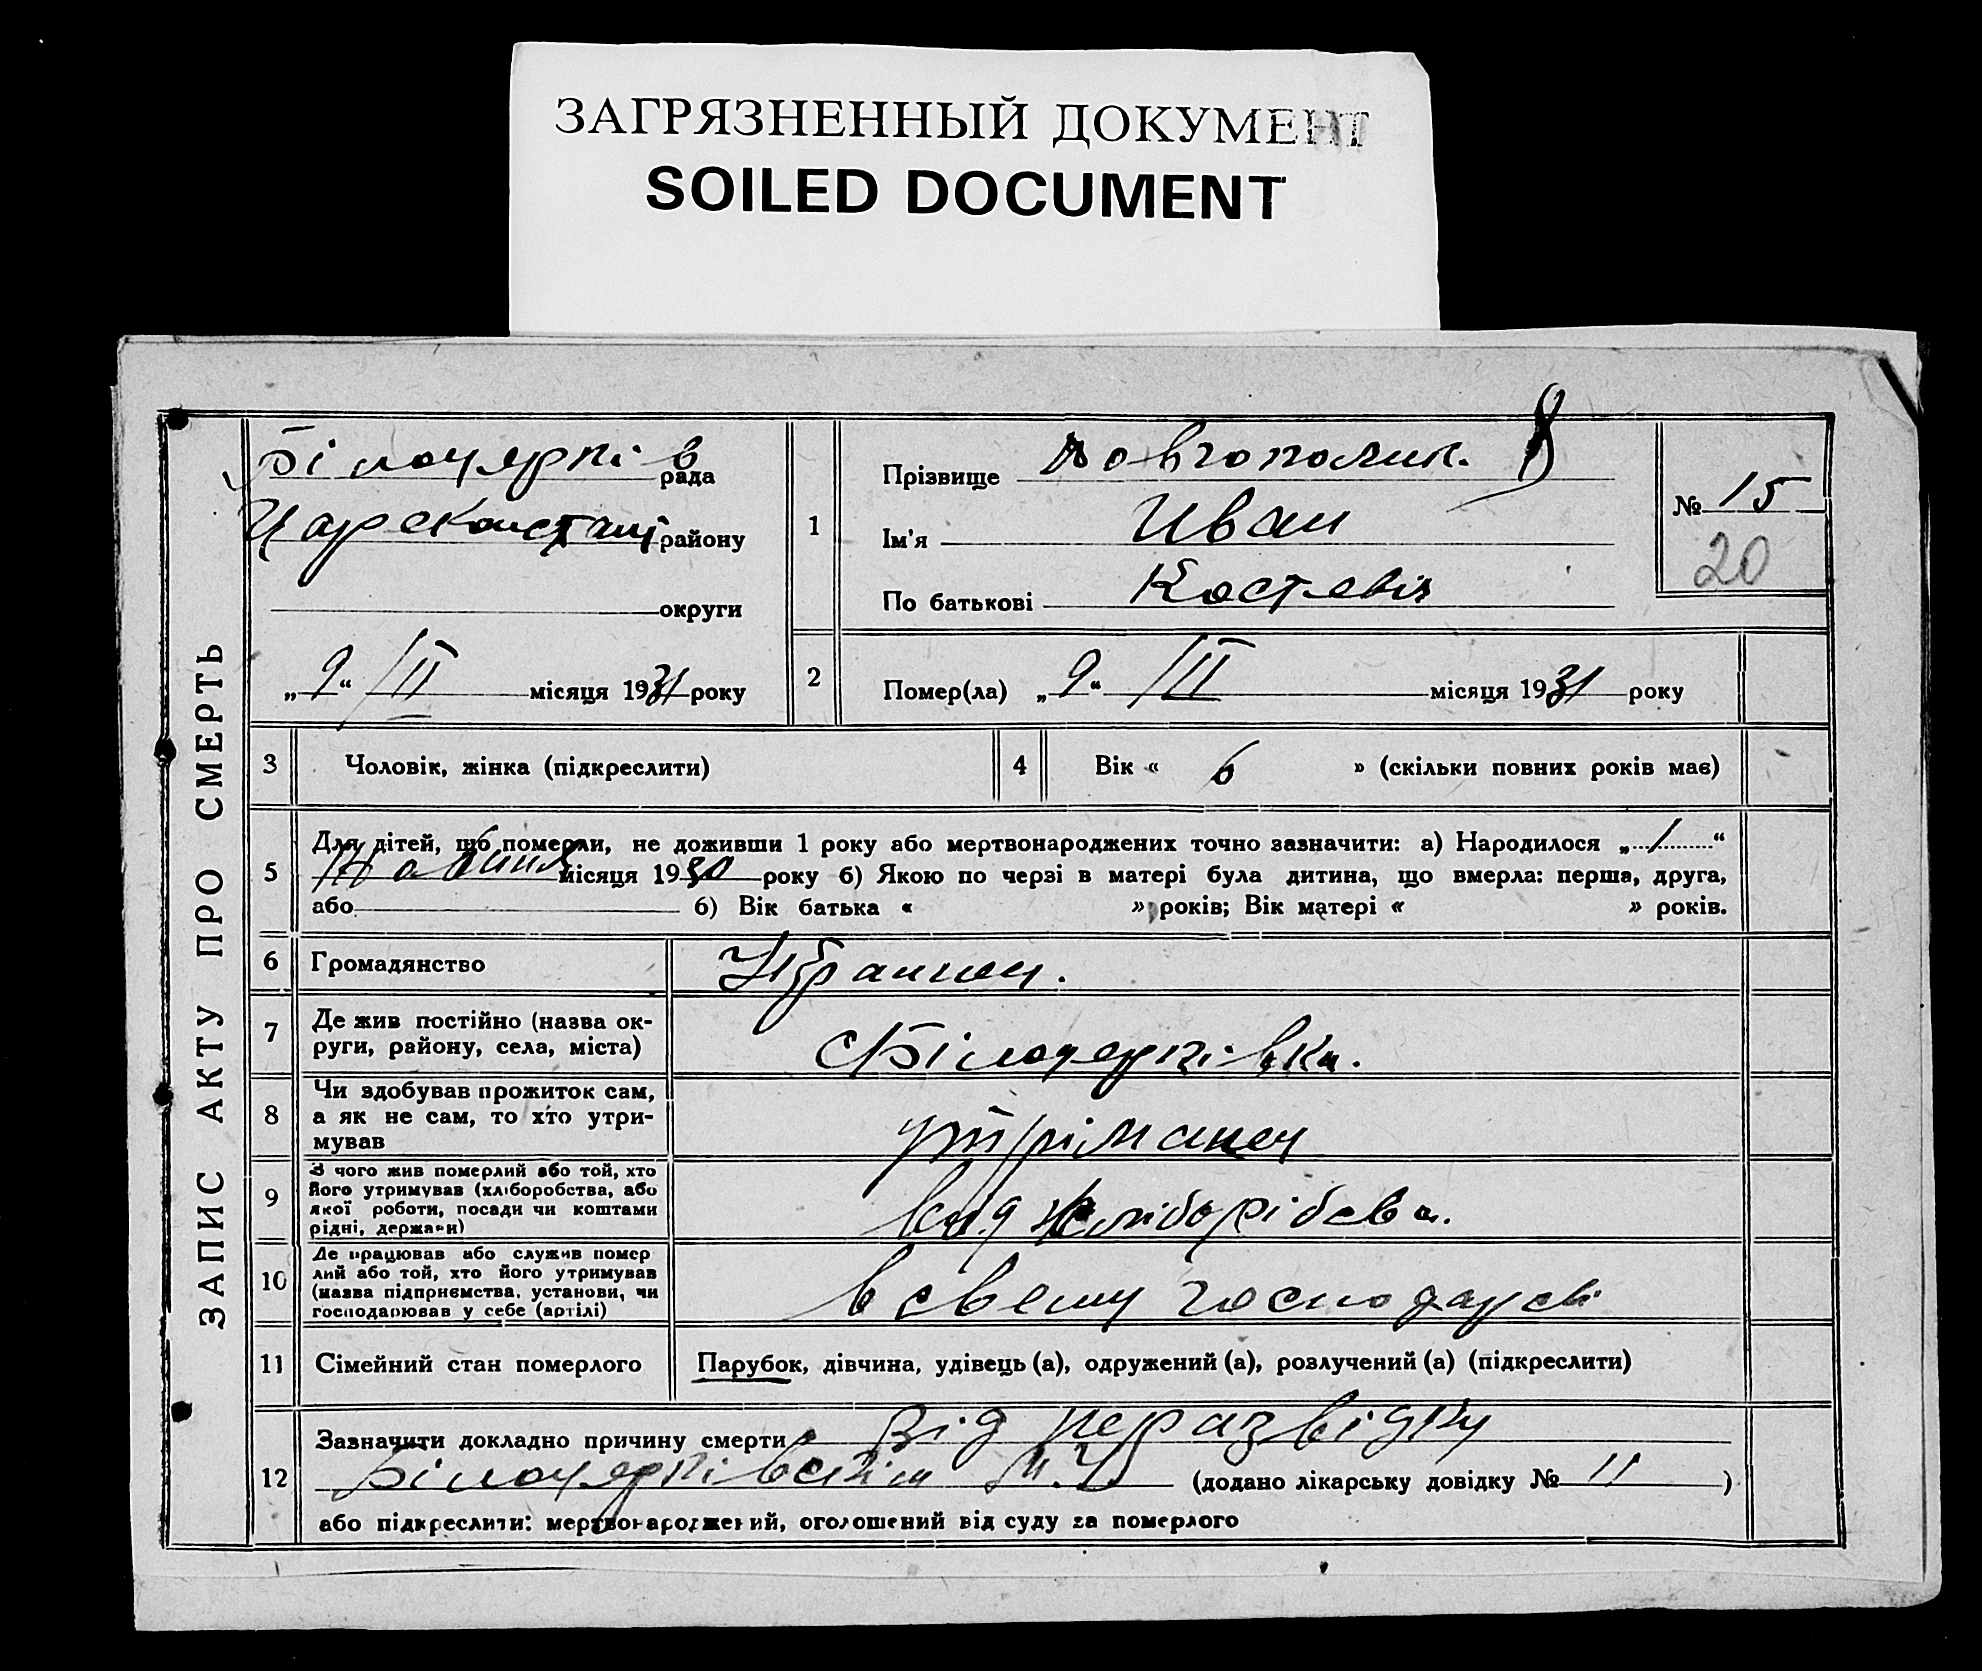 ЗАГРЯЗНЕННЫЙ ДОКУМЕНТ
SOILED DOCUMENT
ЗАПИС АКТУ ПРО СМЕРТЬ
Білоцерків рада
района
округи
„ 9 “ /II місяця 1931 року
1
Прізвище Довгополик.
Ім'я Иван
По батькові Костевіч
№ 15
20
2 Помер(ла) „ 9 “ /II місяця 1931 року
3 Чоловік, жінка (підкреслити)
4 Вік « 6 » (скільки повних років має)
5 Для дітей, що померли, не доживши 1 року або мертвонароджених точно зазначити: а) Народилося „ 1 “
місяця 1930 року б) Якою по черзі в матері була дитина, що вмерла: перша, друга,
або б) Вік батька « » років; Вік матері « » років.
6 Громадянство
7 Де жив постійно (назва ок-
руги, району, села, міста)
Білоцерківка.
8 Чи здобував прожиток сам,
а як не сам, то хто утри-
мував
утріманец
9 З чого жив померлий або той, хто
його утримував (хліборобства, або
якої роботи, посади чи коштами
рідні, держави)
10 Де працював або служив помер
лий або той, хто його утримував
(назва підприємства, установи, чи
господарював у себе (артілі)
в своему
11 Сімейний стан померлого
Парубок, дівчина, удівець (а), одружений (а), розлучений (а) (підкреслити)
12 Зазначити докладно причину смерти Від неразвідку
Білоцерківскім (додано лікарську довідку № 11 )
або підкреслити: мертвонароджений, оголошений від суду за померлого